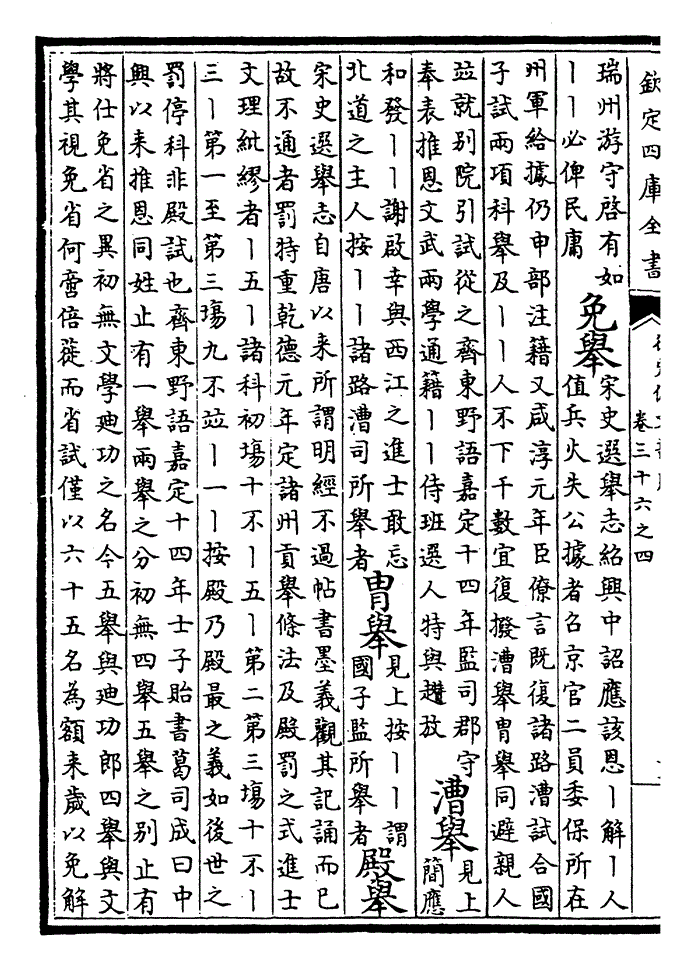 欽定四庫全書
卷三十六之四
瑞州游守啓有如
丨丨必俾民庸
免舉
宋史選舉志紹興中詔應該恩丨解丨人
值兵火失公據者召京官二員委保所在
州軍給據仍申部注籍又咸淳元年臣僚言既復諸路漕試合國
子試兩項科舉及丨丨人不下千數宜復撥漕舉冑舉同避親人
竝就别院引試從之齊東野語嘉定十四年監司郡守
奉表推恩文武兩學通籍丨丨侍班選人特與趲放
漕舉
見上
簡應
和發丨丨謝啟幸與西江之進士敢忘
北道之主人按丨丨諸路漕司所舉者
冑舉
見上按丨丨謂
國子監所舉者
殿舉
宋史選舉志自唐以来所謂明經不過帖書墨義觀其記誦而已
故不通者罰特重乾德元年定諸州貢舉條法及殿罰之式進士
文理紕繆者丨五丨諸科初塲十不丨五丨第二第三塲十不丨
三丨第一至第三塲九不竝丨一丨按殿乃殿最之義如後世之
罰停科非殿試也齊東野語嘉定十四年士子貽書葛司成曰中
興以来推恩同姓止有一舉兩舉之分初無四舉五舉之别止有
將仕免省之異初無文學廸功之名今五舉與廸功郎四舉與文
學其視免省何啻倍蓰而省試僅以六十五名為額来歲以免解